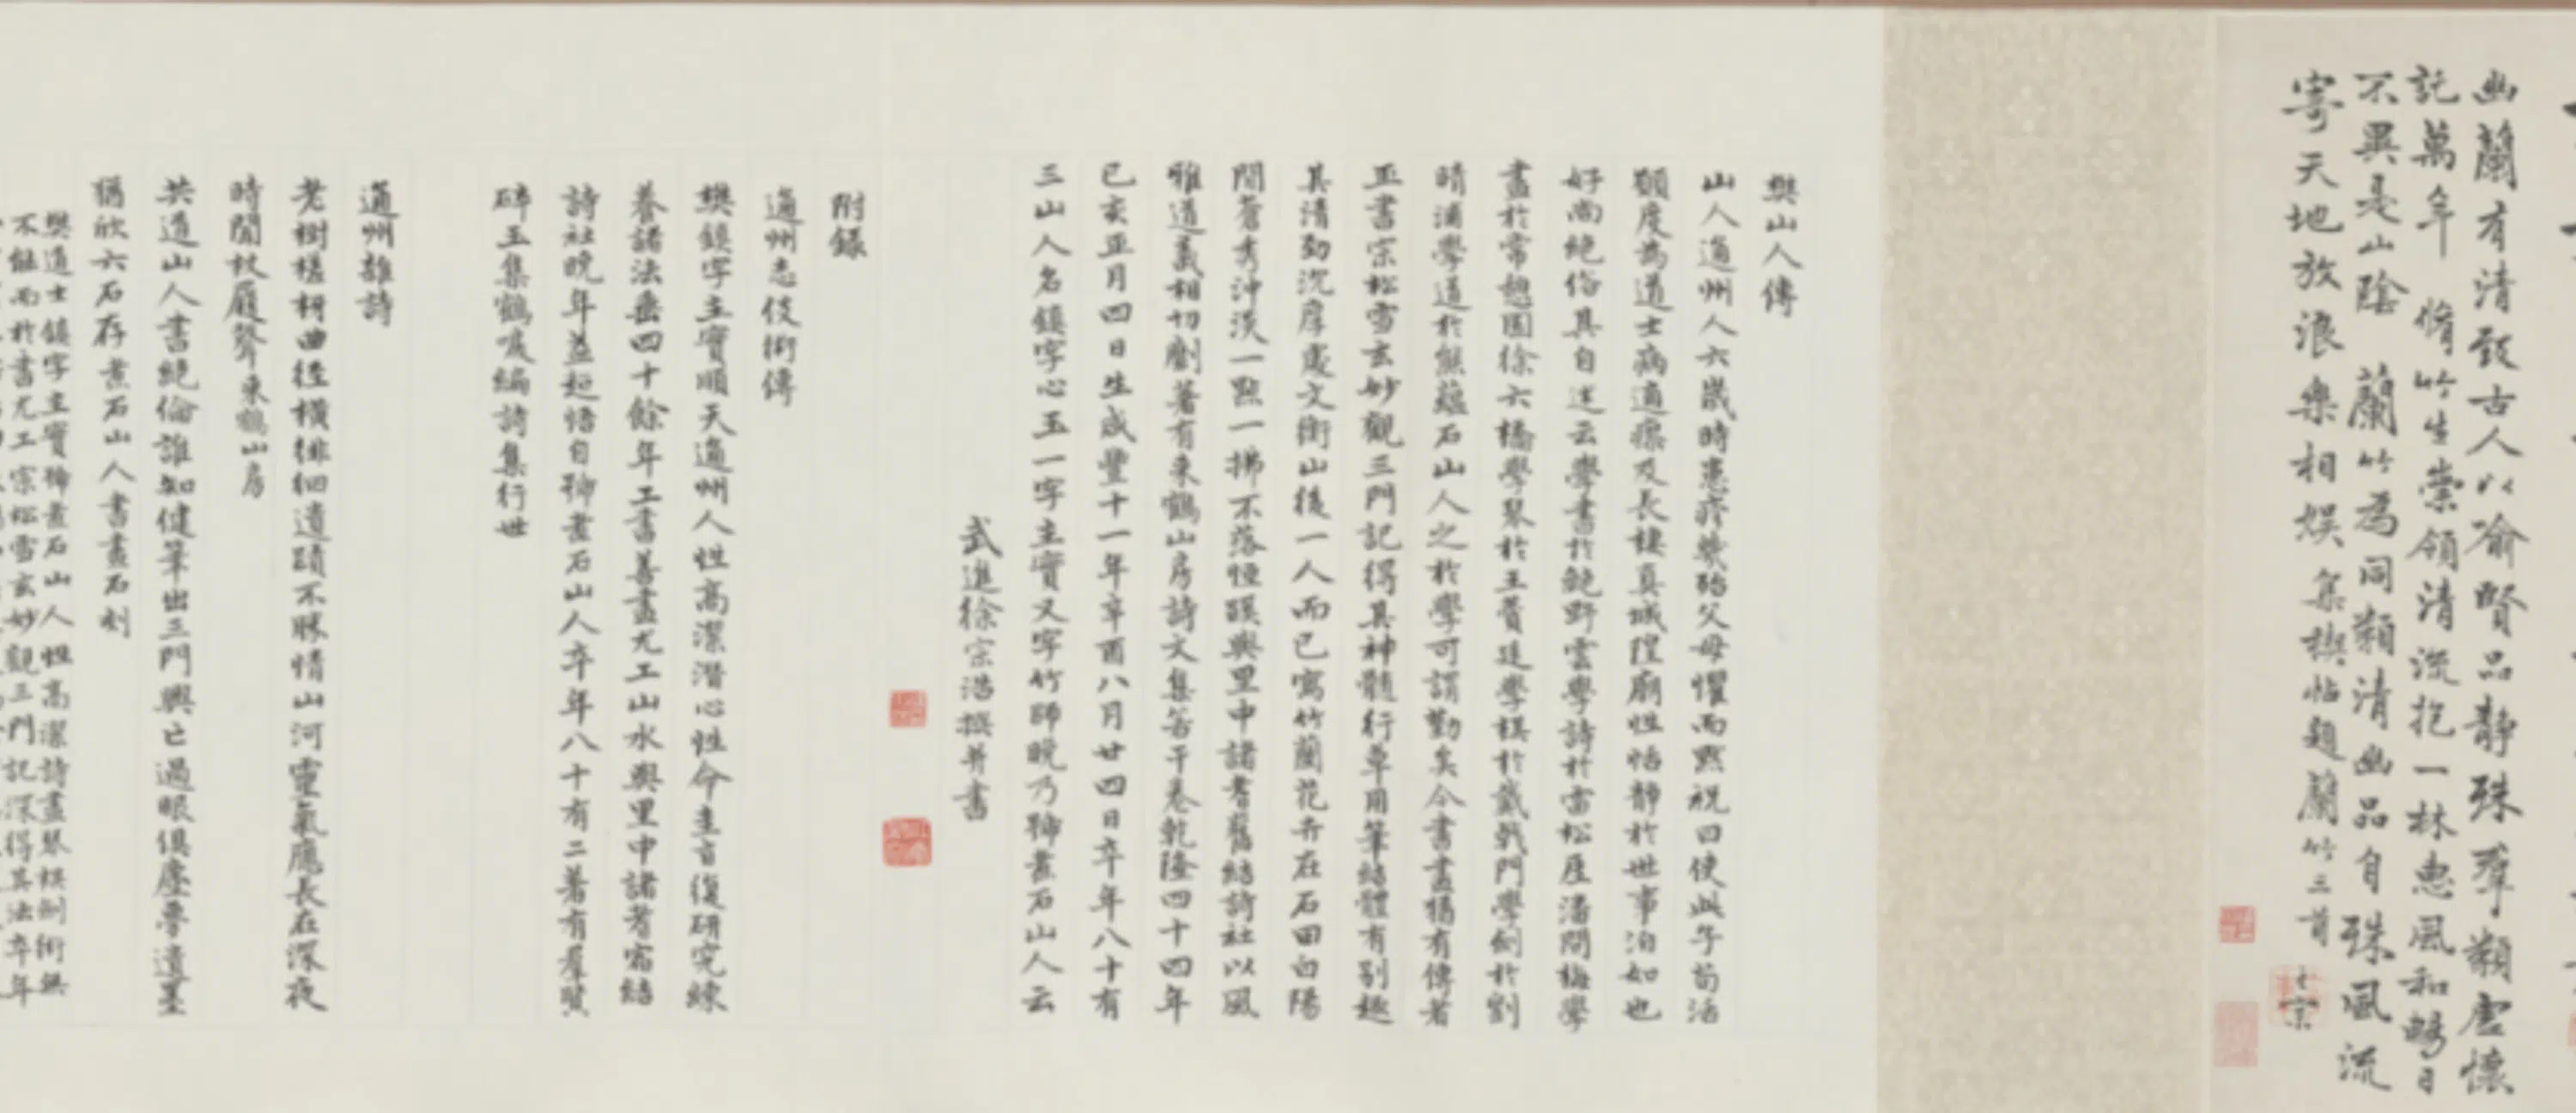 幽蘭有清致古人以喻賢品靜殊羣類虛懷
託萬年　脩竹生崇領清流抱一林惠風和暢日
不異是山陰　蘭竹為同類清幽品自殊風流
寄天地放浪樂相娛　集禊帖題蘭竹三首　士宗
樊山人傳
山人通州人六歲時患疹幾殆父母懼而默祝曰使此子苟活
願度為道士病適瘳及長棲真城隍廟性恬靜於世事泊如也
好尚絕俗其自述云學書於鮑野雲學詩於雷松厓潘問梅學
畫於常憩園徐六橋學琴於王賁廷學棋於戴戟門學劍於劉
晴浦學道於熊蘊石山人之於學可謂勤矣今書畫猶有傳者
正書宗松雪玄妙觀三門記得其神髓行草用筆結體有別趣
其清勁沉厚處文衡山後一人而已寫竹蘭花卉在石田白陽
間蒼秀沖淡一點一拂不落恒蹊與里中諸耆舊結詩社以風
雅道義相切劘著有來鶴山房詩文集若干卷乾隆四十四年
己亥正月四日生咸豐十一年辛酉八月廿四日卒年八十有
三山人名鎮字心玉一字主賓又字竹師晚乃號畫石山人云
武進徐宗浩撰并書
附錄
通州志伎術傳
樊鎮字主賓順天通州人性高潔潛心性命圭旨復研究練
養諸法垂四十餘年工書善畫尤工山水與里中諸耆宿結
詩社晚年益超悟自號畫石山人卒年八十有二著有羣賢
碎玉集鶴唳編詩集行世
通州雜詩
老樹槎枒曲徑橫徘徊遺蹟不勝情山河靈氣應長在深夜
時聞杖屨聲來鶴山房
共道山人書絕倫誰知健筆出三門興亡過眼俱塵夢遺墨
猶欣六石存畫石山人書畫石刻
樊道士鎮字主賓號畫石山人性高潔詩畫琴棋劍術無
不能而於書尤工宗松雪玄妙觀三門記深得其法卒年